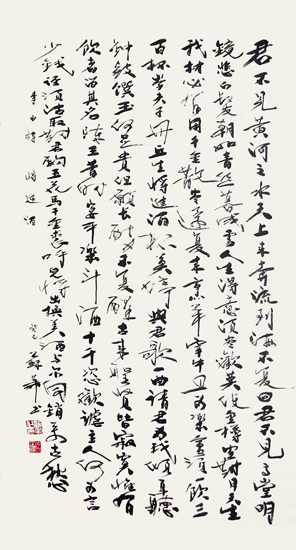 君不見黃河之水天上來奔流到海不復回君不見高堂明
鏡悲白髮朝如青絲暮成雪人生得意須盡歡莫使金樽空對月天生
我材必有用千金散盡還復來烹羊宰牛且為樂會須一飲三
百杯岑夫子丹丘生將進酒杯莫停與君歌一曲請君為我傾耳聽
鐘鼓饌玉何足貴但願長醉不復醒古來聖賢皆寂寞惟有
飲者留其名陳王昔時宴平樂斗酒十千恣歡謔主人何為言
少錢徑須沽取對君酌五花馬千金裘呼兒將出換美酒與爾同銷萬古愁
李白詩將進酒
癸巳蘇華書